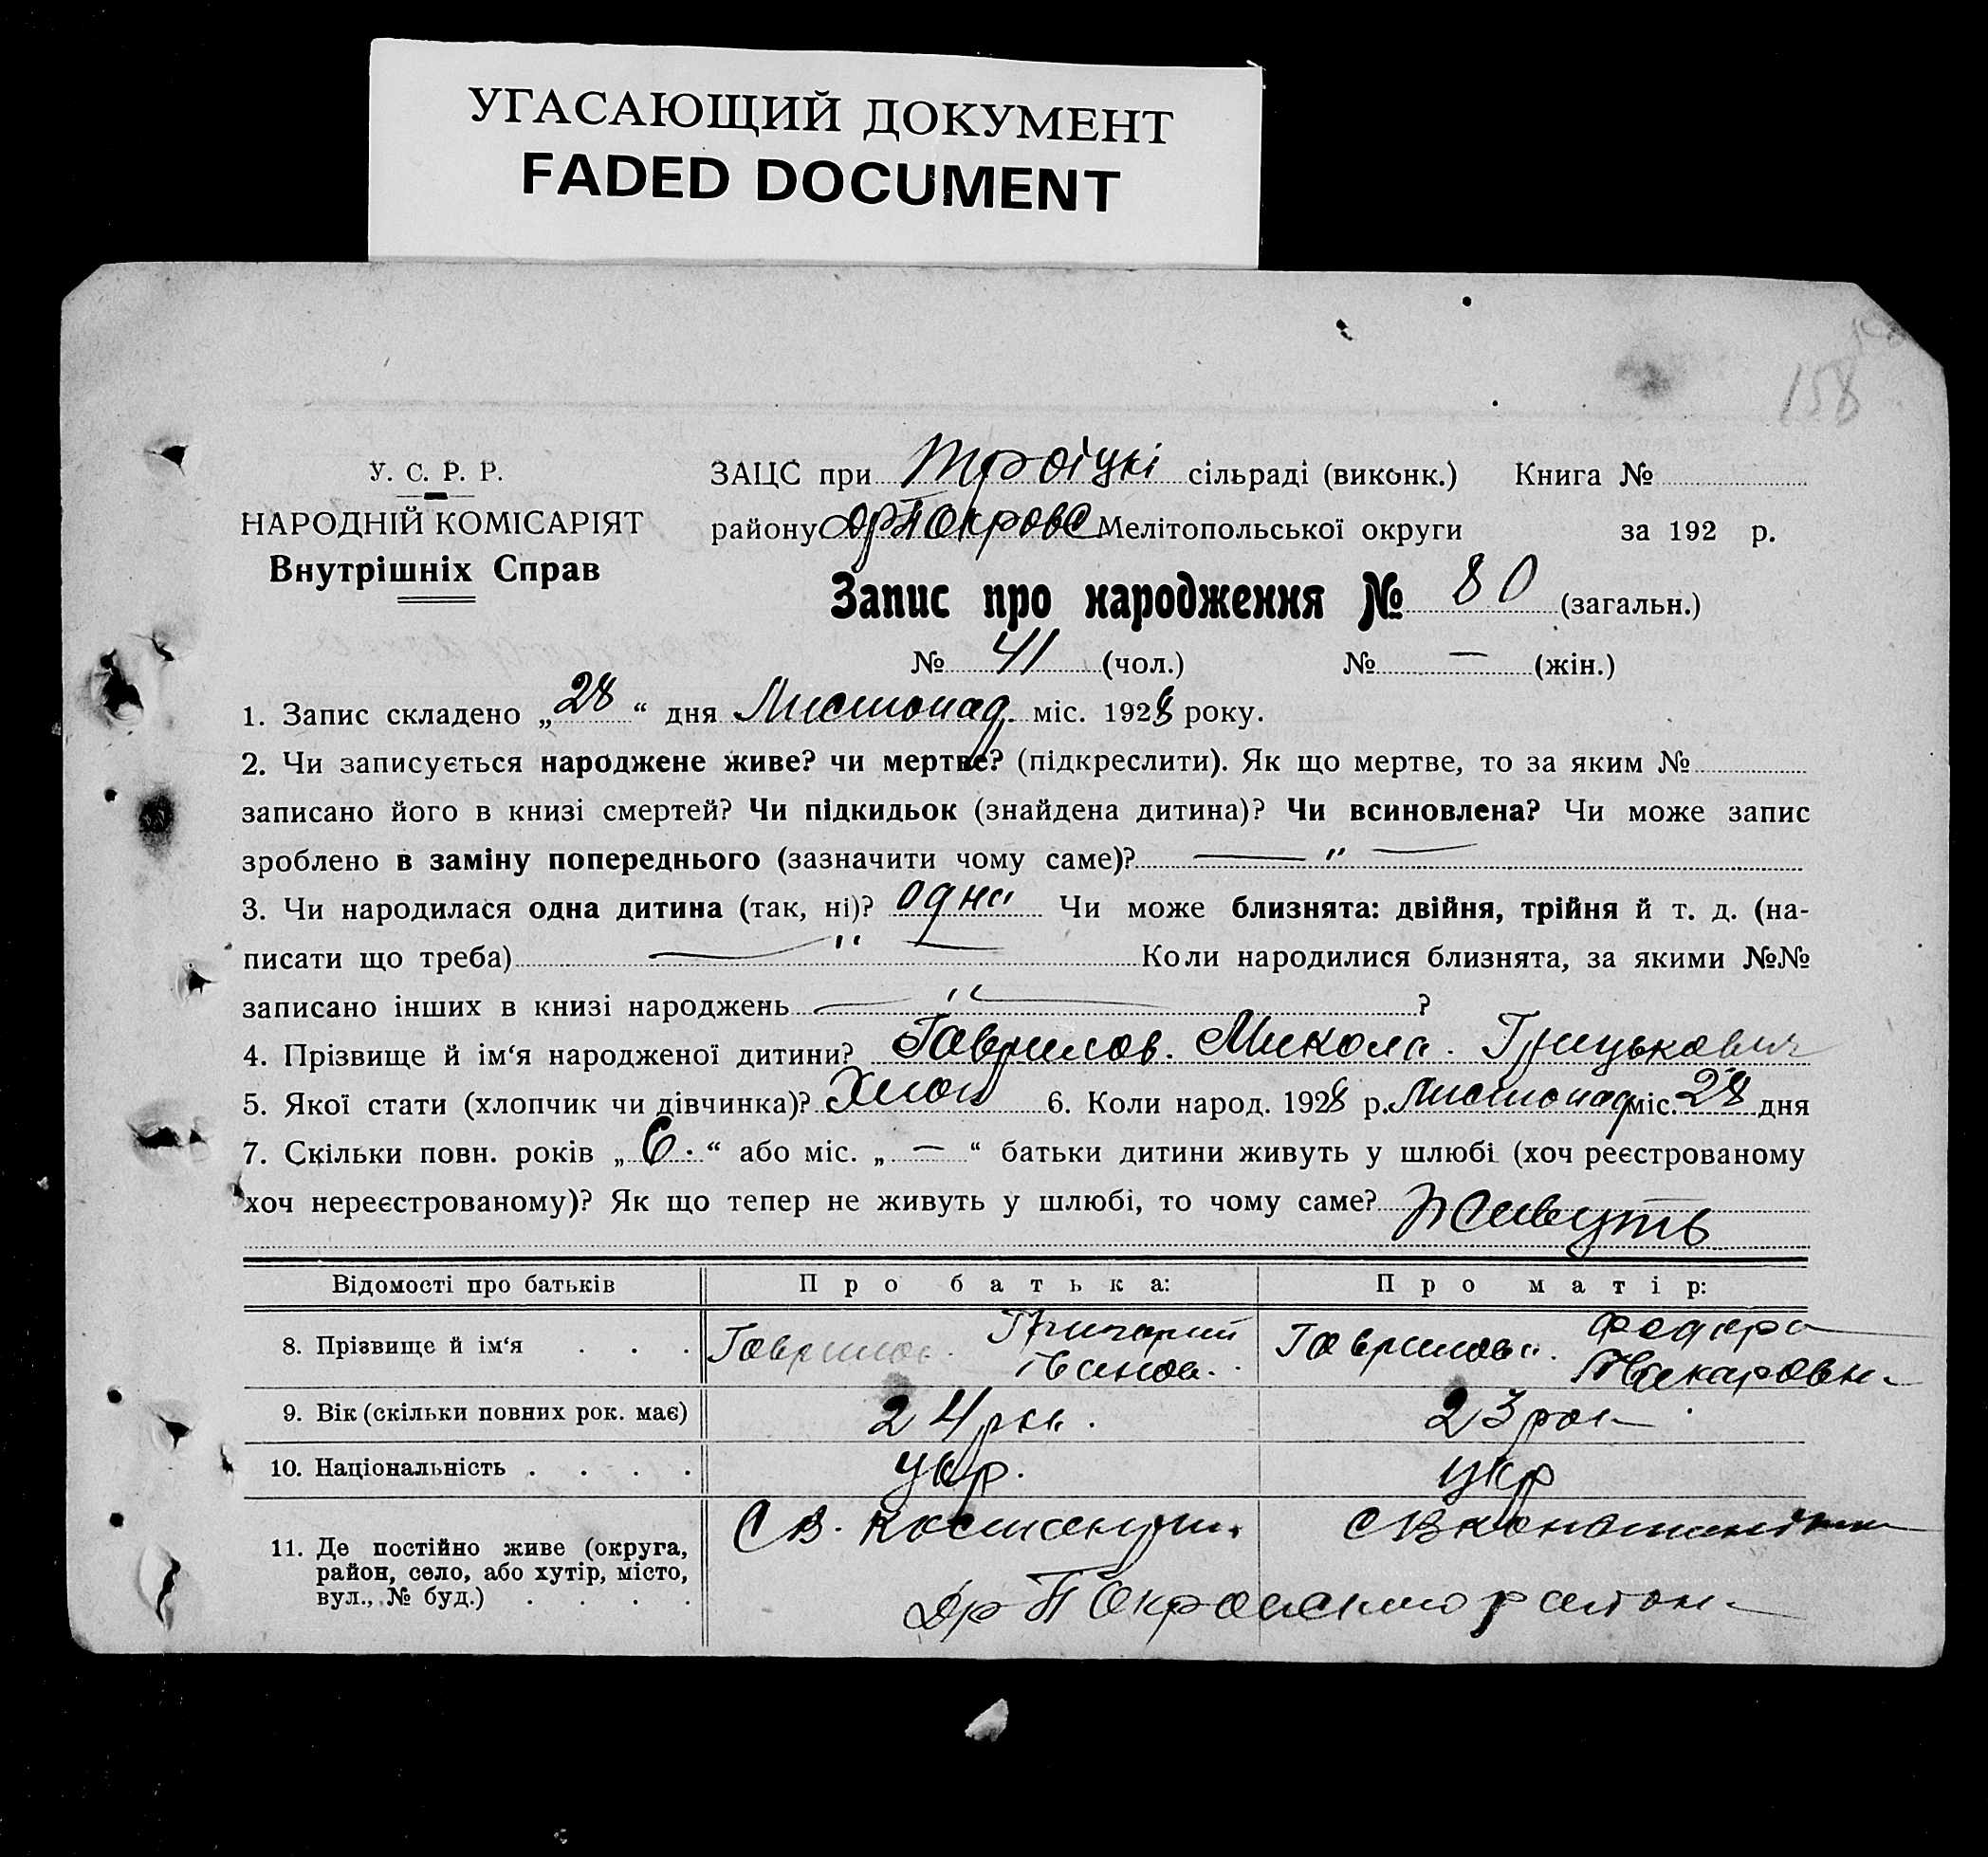 УГАСАЮЩИЙ ДОКУМЕНТ
FADED DOCUMENT
158
У. С. Р. Р.
НАРОДНІЙ КОМІСАРІЯТ
Внутрішніх Справ
ЗАЦС при Троіцкі сільраді (виконк.) Книга №
району Мелітопольської округи за 192 р.
Запис про народження № 80 (загальн.)
№ 41 (чол.) № — (жін.)
1. Запис складено „28“ дня Листопад. міс. 1928 року.
2. Чи записується народжене живе? чи мертве? (підкреслити). Як що мертве, то за яким №
записано його в книзі смертей? Чи підкидьок (знайдена дитина)? Чи всиновлена? Чи може запис
зроблено в заміну попереднього (зазначити чому саме)? — " —
3. Чи народилася одна дитина (так, ні)? одна Чи може близнята: двійня, трійня й т. д. (на-
писати що треба) — " — Коли народилися близнята, за якими №№
записано інших в книзі народжень — " — ?
4. Прізвище й ім‘я народженої дитини? Гаврилов. Микола. Грицькович
5. Якої стати (хлопчик чи дівчинка)? Хлоп 6. Коли народ. 1928 р. Листопад міс. 28 дня
7. Скільки повн. років „6.“ або міс. „—“ батьки дитини живуть у шлюбі (хоч реєстрованому
хоч нереєстрованому)? Як що тепер не живуть у шлюбі, то чому саме? Живуть
Відомості про батьків Про батька: Про матір:
8. Прізвище й ім‘я . . . Гаврилов. Григорий Іванов. Гаврилова. Федора Макаровн
9. Вік (скільки повних рок. має) 24 рок. 23 рок
10. Національність . . . . укр. укр
11. Де постійно живе (округа,
район, село, або хутір, місто,
вул., № буд.) . . . .